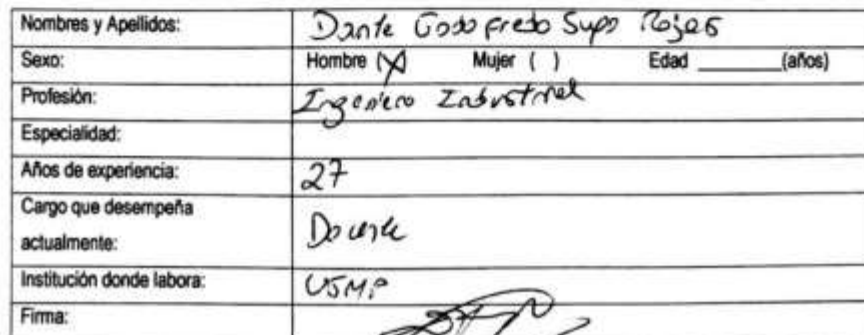 Nombres y Apellidos: Dante Godofredo Supo Rojas
Sexo: Hombre (X) Mujer ( ) Edad ________(años)
Profesión: Ingeniero Industrial
Especialidad:
Años de experiencia: 27
Cargo que desempeña
actualmente: Docente
Institución donde labora: USMP
Firma: